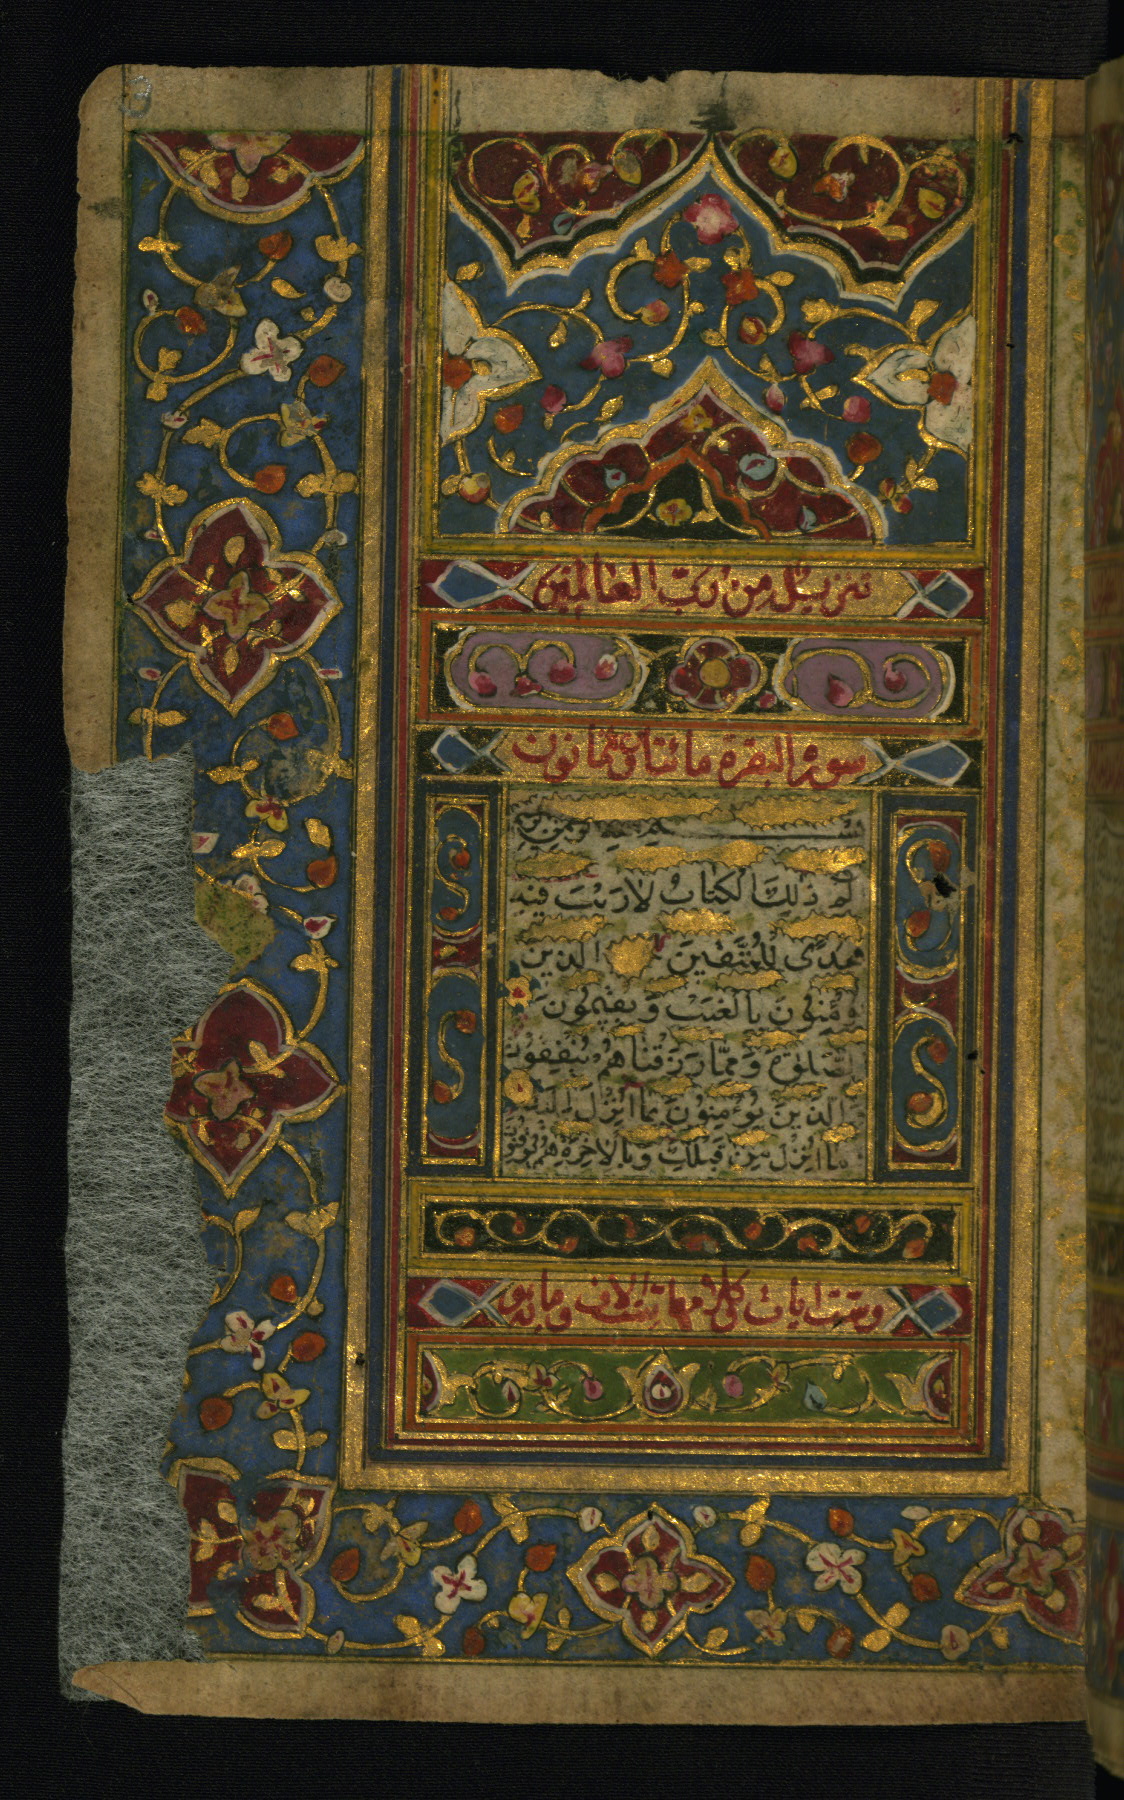 تنزيل من رب العالمين
سورة البقرة مائتان وثمانون
بسم
لم ذلك الكتاب لا ريب فيه
هدى للمتقين الذين
ومنون بالغيب ويقيمون
الصلوة ومما رزقناهم ينفقون
الذين يؤمنون بما انزل اليك
ما انزل من قبلك وبالاخرة هم يوقنو
وست ايات